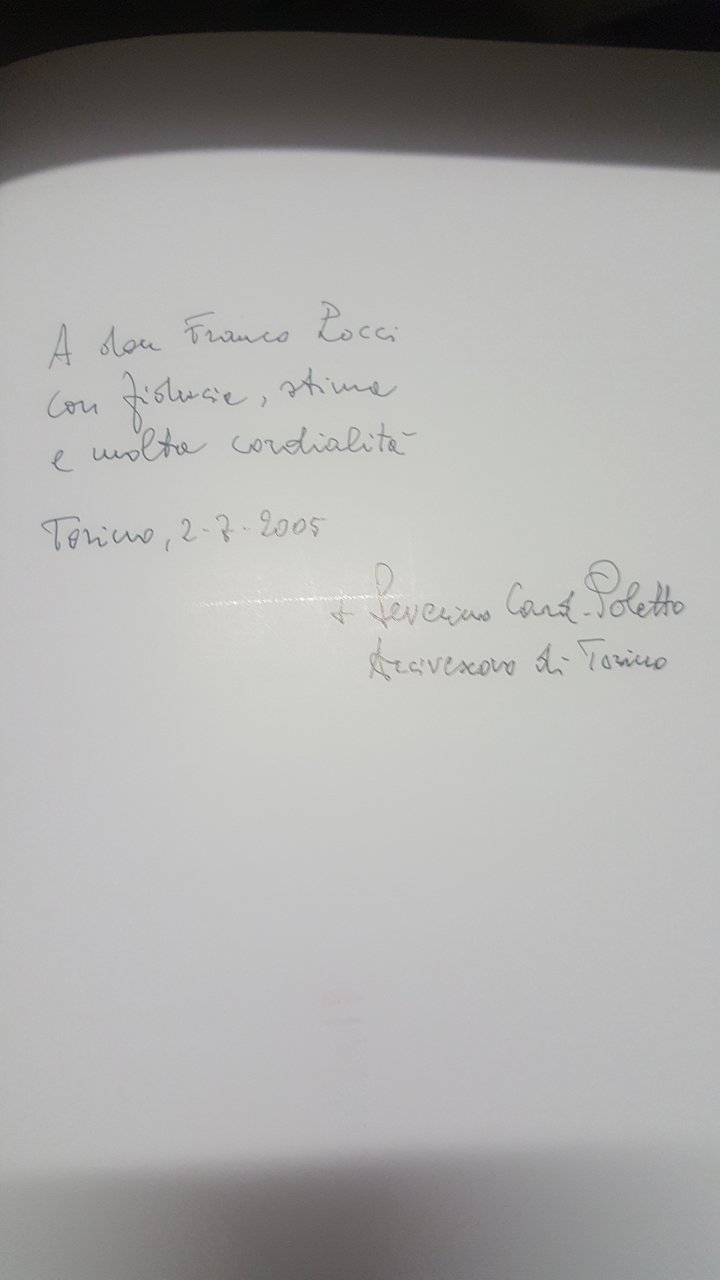 A don Franco Rocci
con fiducia, stima
e molta cordialità
Torino, 2-7-2005
+ Severino Card. Poletto
Arcivescovo di Torino